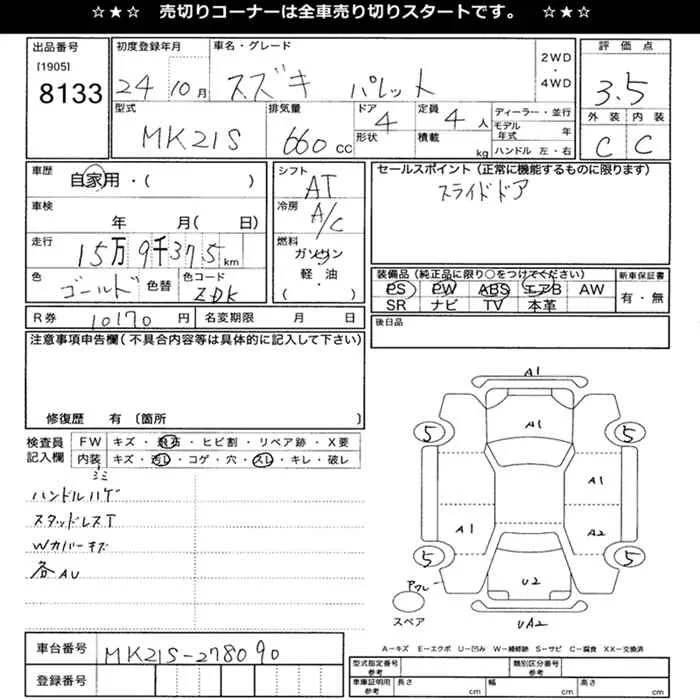 ☆★☆ 売切りコーナーは全車売り切りスタートです。 ☆★☆
出品番号 [1905] 8133
初度登録年月 24 10月
車名・グレード スズキ パレット
2WD ・ 4WD
評価点 3.5
外装 内装
C C
型式 MK21S
排気量 660 cc
ドア 4 形状
定員 4 人 積載 kg
ディーラー・並行
モデル年式 年
ハンドル 左・右
車歴 自家用・( )
車検 年 月( 日)
走行 15万9千375km
色 ゴールド 色替 色コード ZDK
シフト AT
冷房 A/C
燃料 ガソリン 軽・油 ( )
セールスポイント(正常に機能するものに限ります)
スライドドア
装備品(純正品に限り○をつけてください)
PS PW ABS エアB AW
SR ナビ TV 本革
新車保証書 有・無
R券 10170 円 名変期限 月 日
後日品
注意事項申告欄(不具合内容等は具体的に記入して下さい)
修復歴 有 〔箇所 〕
検査員記入欄 FW キズ・飛石・ヒビ割・リペア跡・X要
内装 キズ・汚レ・コゲ・穴・スレ・キレ・破レ
ハンドルハゲ
スタッドレスT
Wカバーキズ
各AU
A1
A1
5 5
A1
A1 A2
5 5
U2
スペア
UA2
A=キズ E=エクボ U=凹み W=補修跡 S=サビ C=腐食 XX=交換済
車台番号 MK21S-278090
登録番号
型式指定番号 参考 類別区分番号 参考
車庫証明用 参考 長さ cm 幅 cm 高さ cm